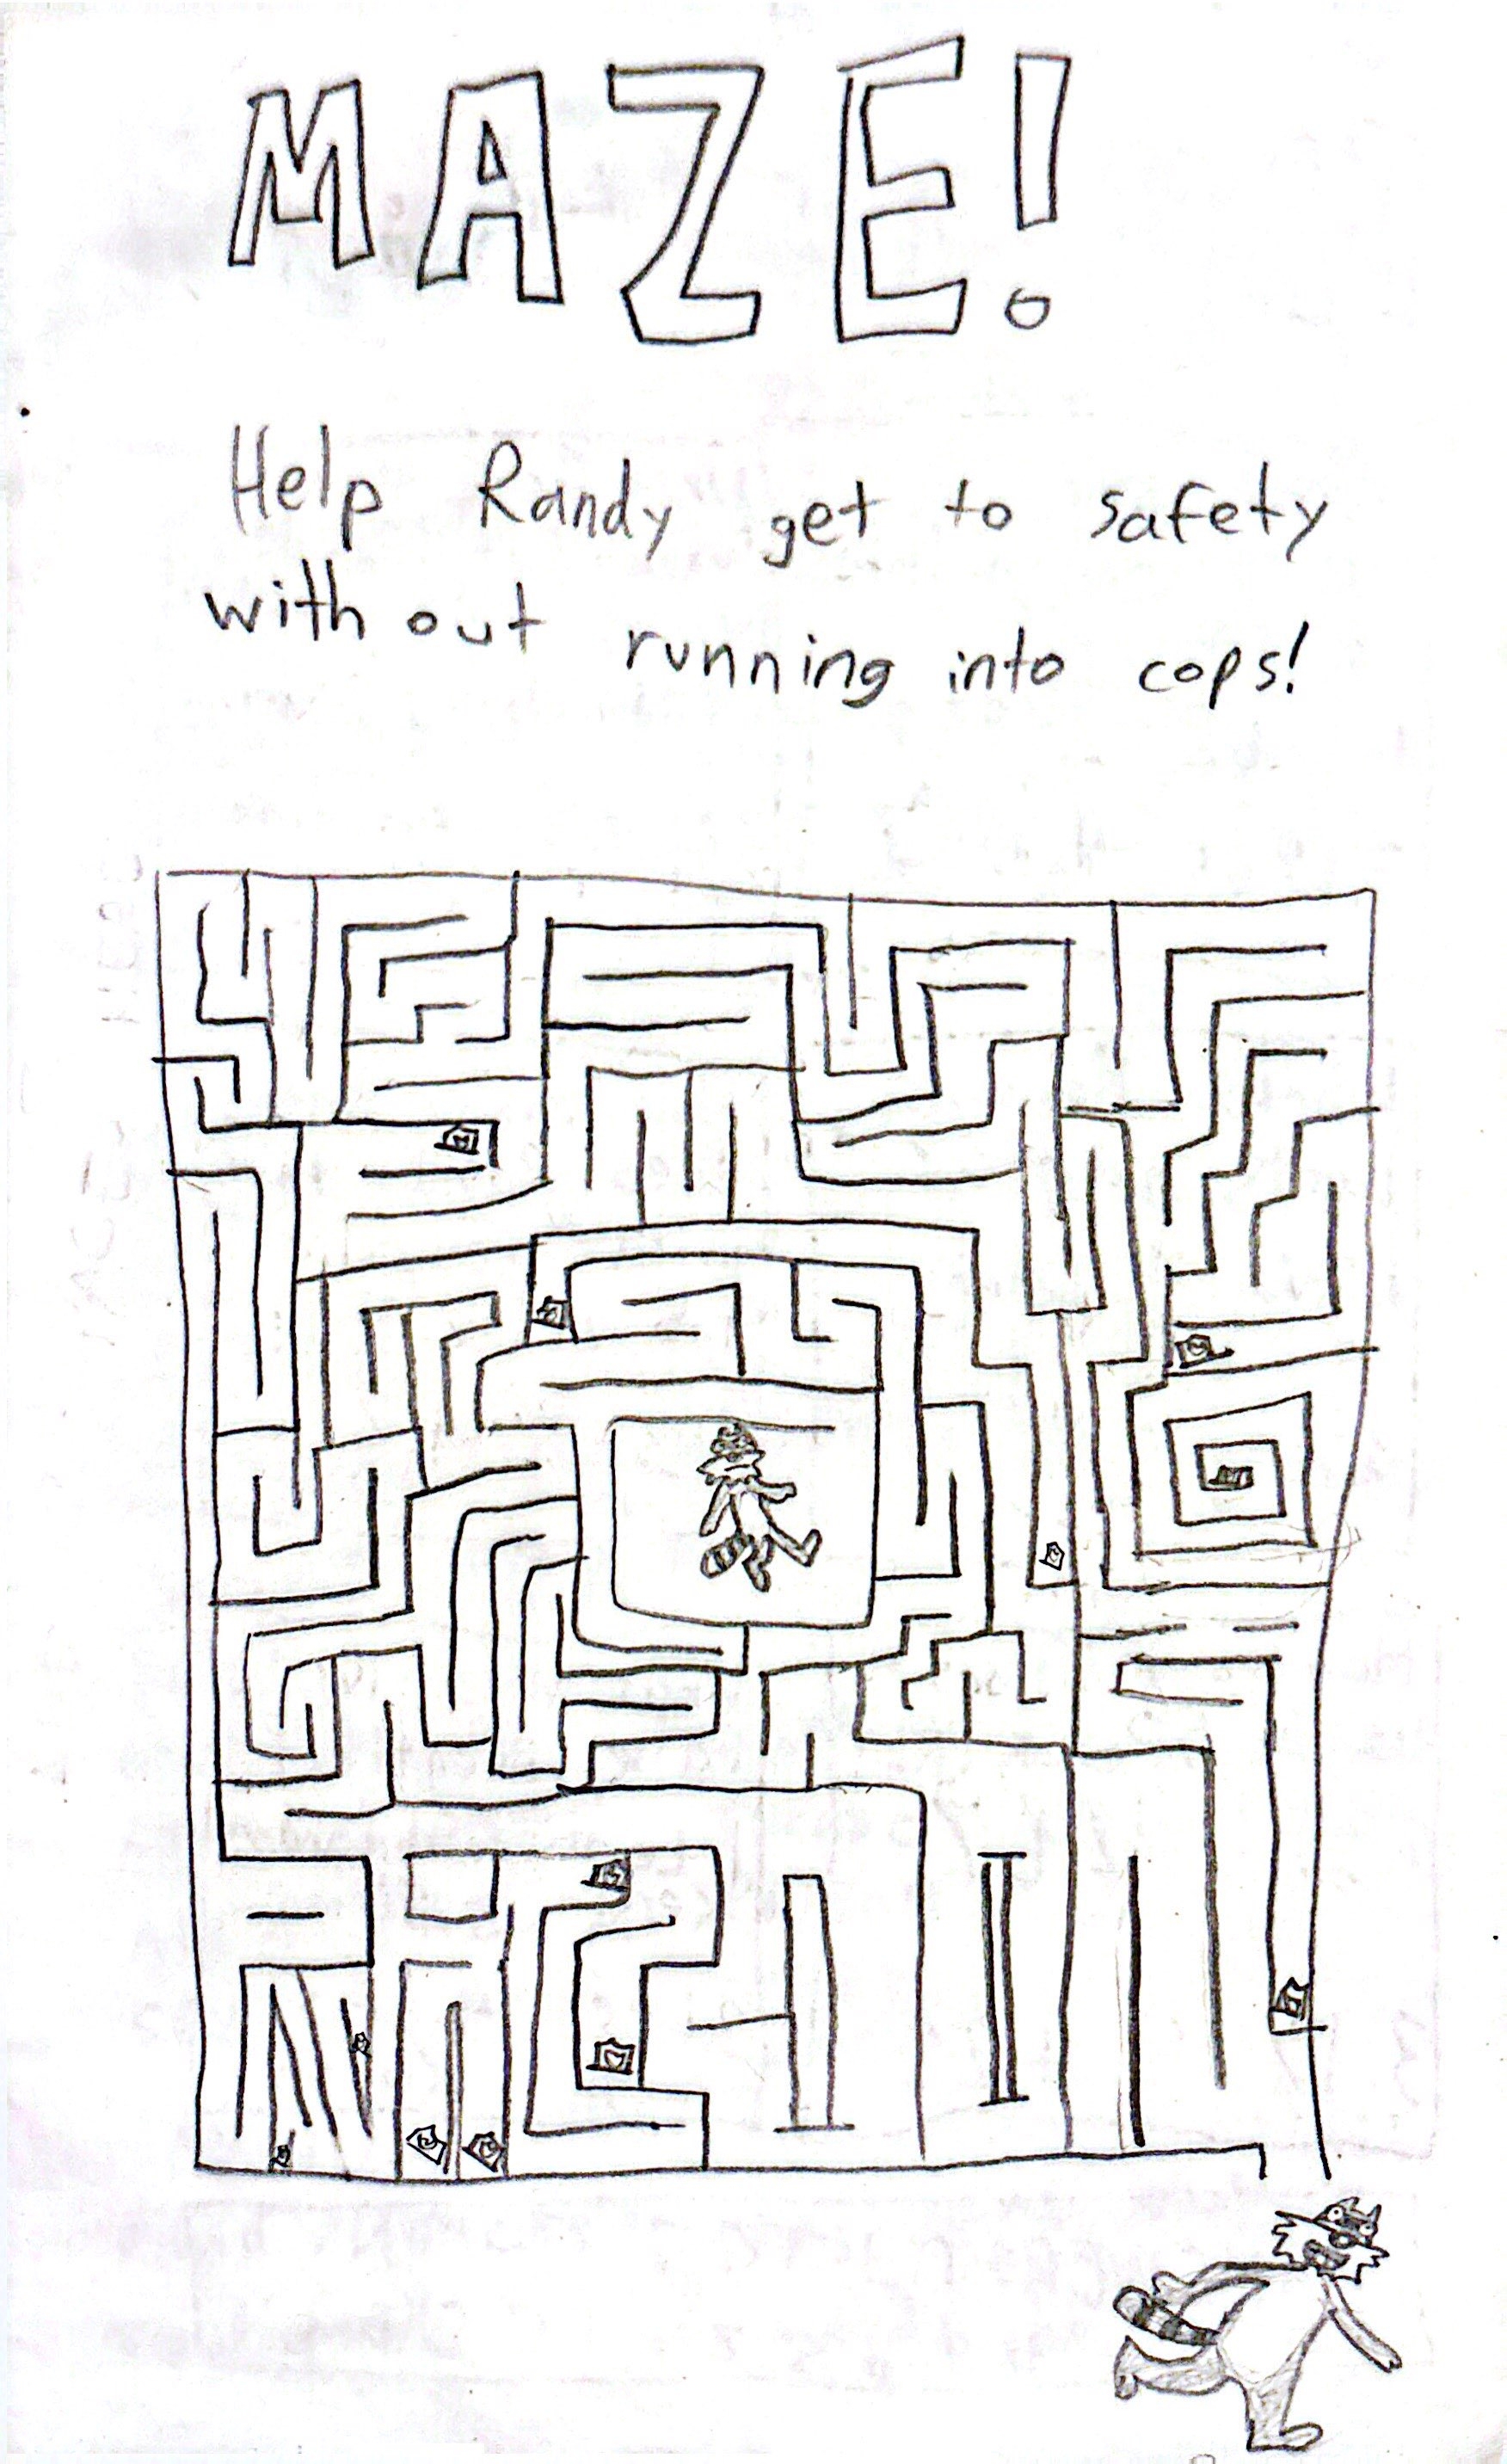 MAZE!
Help Randy get to safety
with out running into cops!